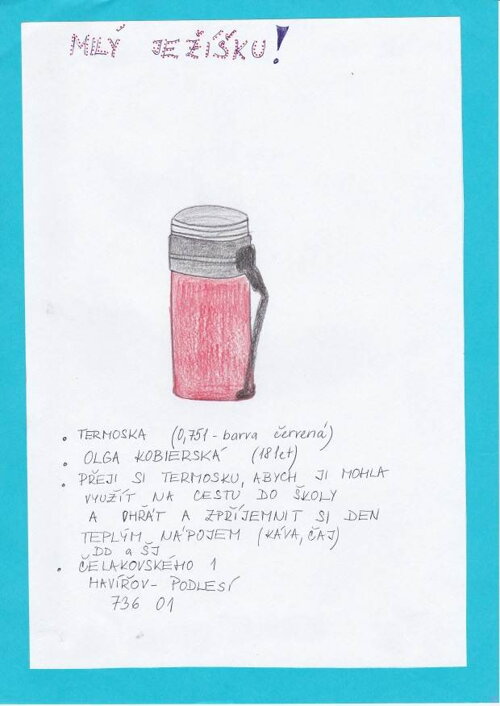 MILÝ JEŽÍŠKU!
• TERMOSKA (0,75l - barva červená)
• OLGA KOBIERSKÁ (18 let)
• PŘEJI SI TERMOSKU, ABYCH JI MOHLA
VYUŽÍT NA CESTU DO ŠKOLY
A OHŘÁT A ZPŘÍJEMNIT SI DEN
TEPLÝM NÁPOJEM (KÁVA, ČAJ)
DD a ŠJ
• ČELAKOVSKÉHO 1
HAVÍŘOV - PODLESÍ
736 01